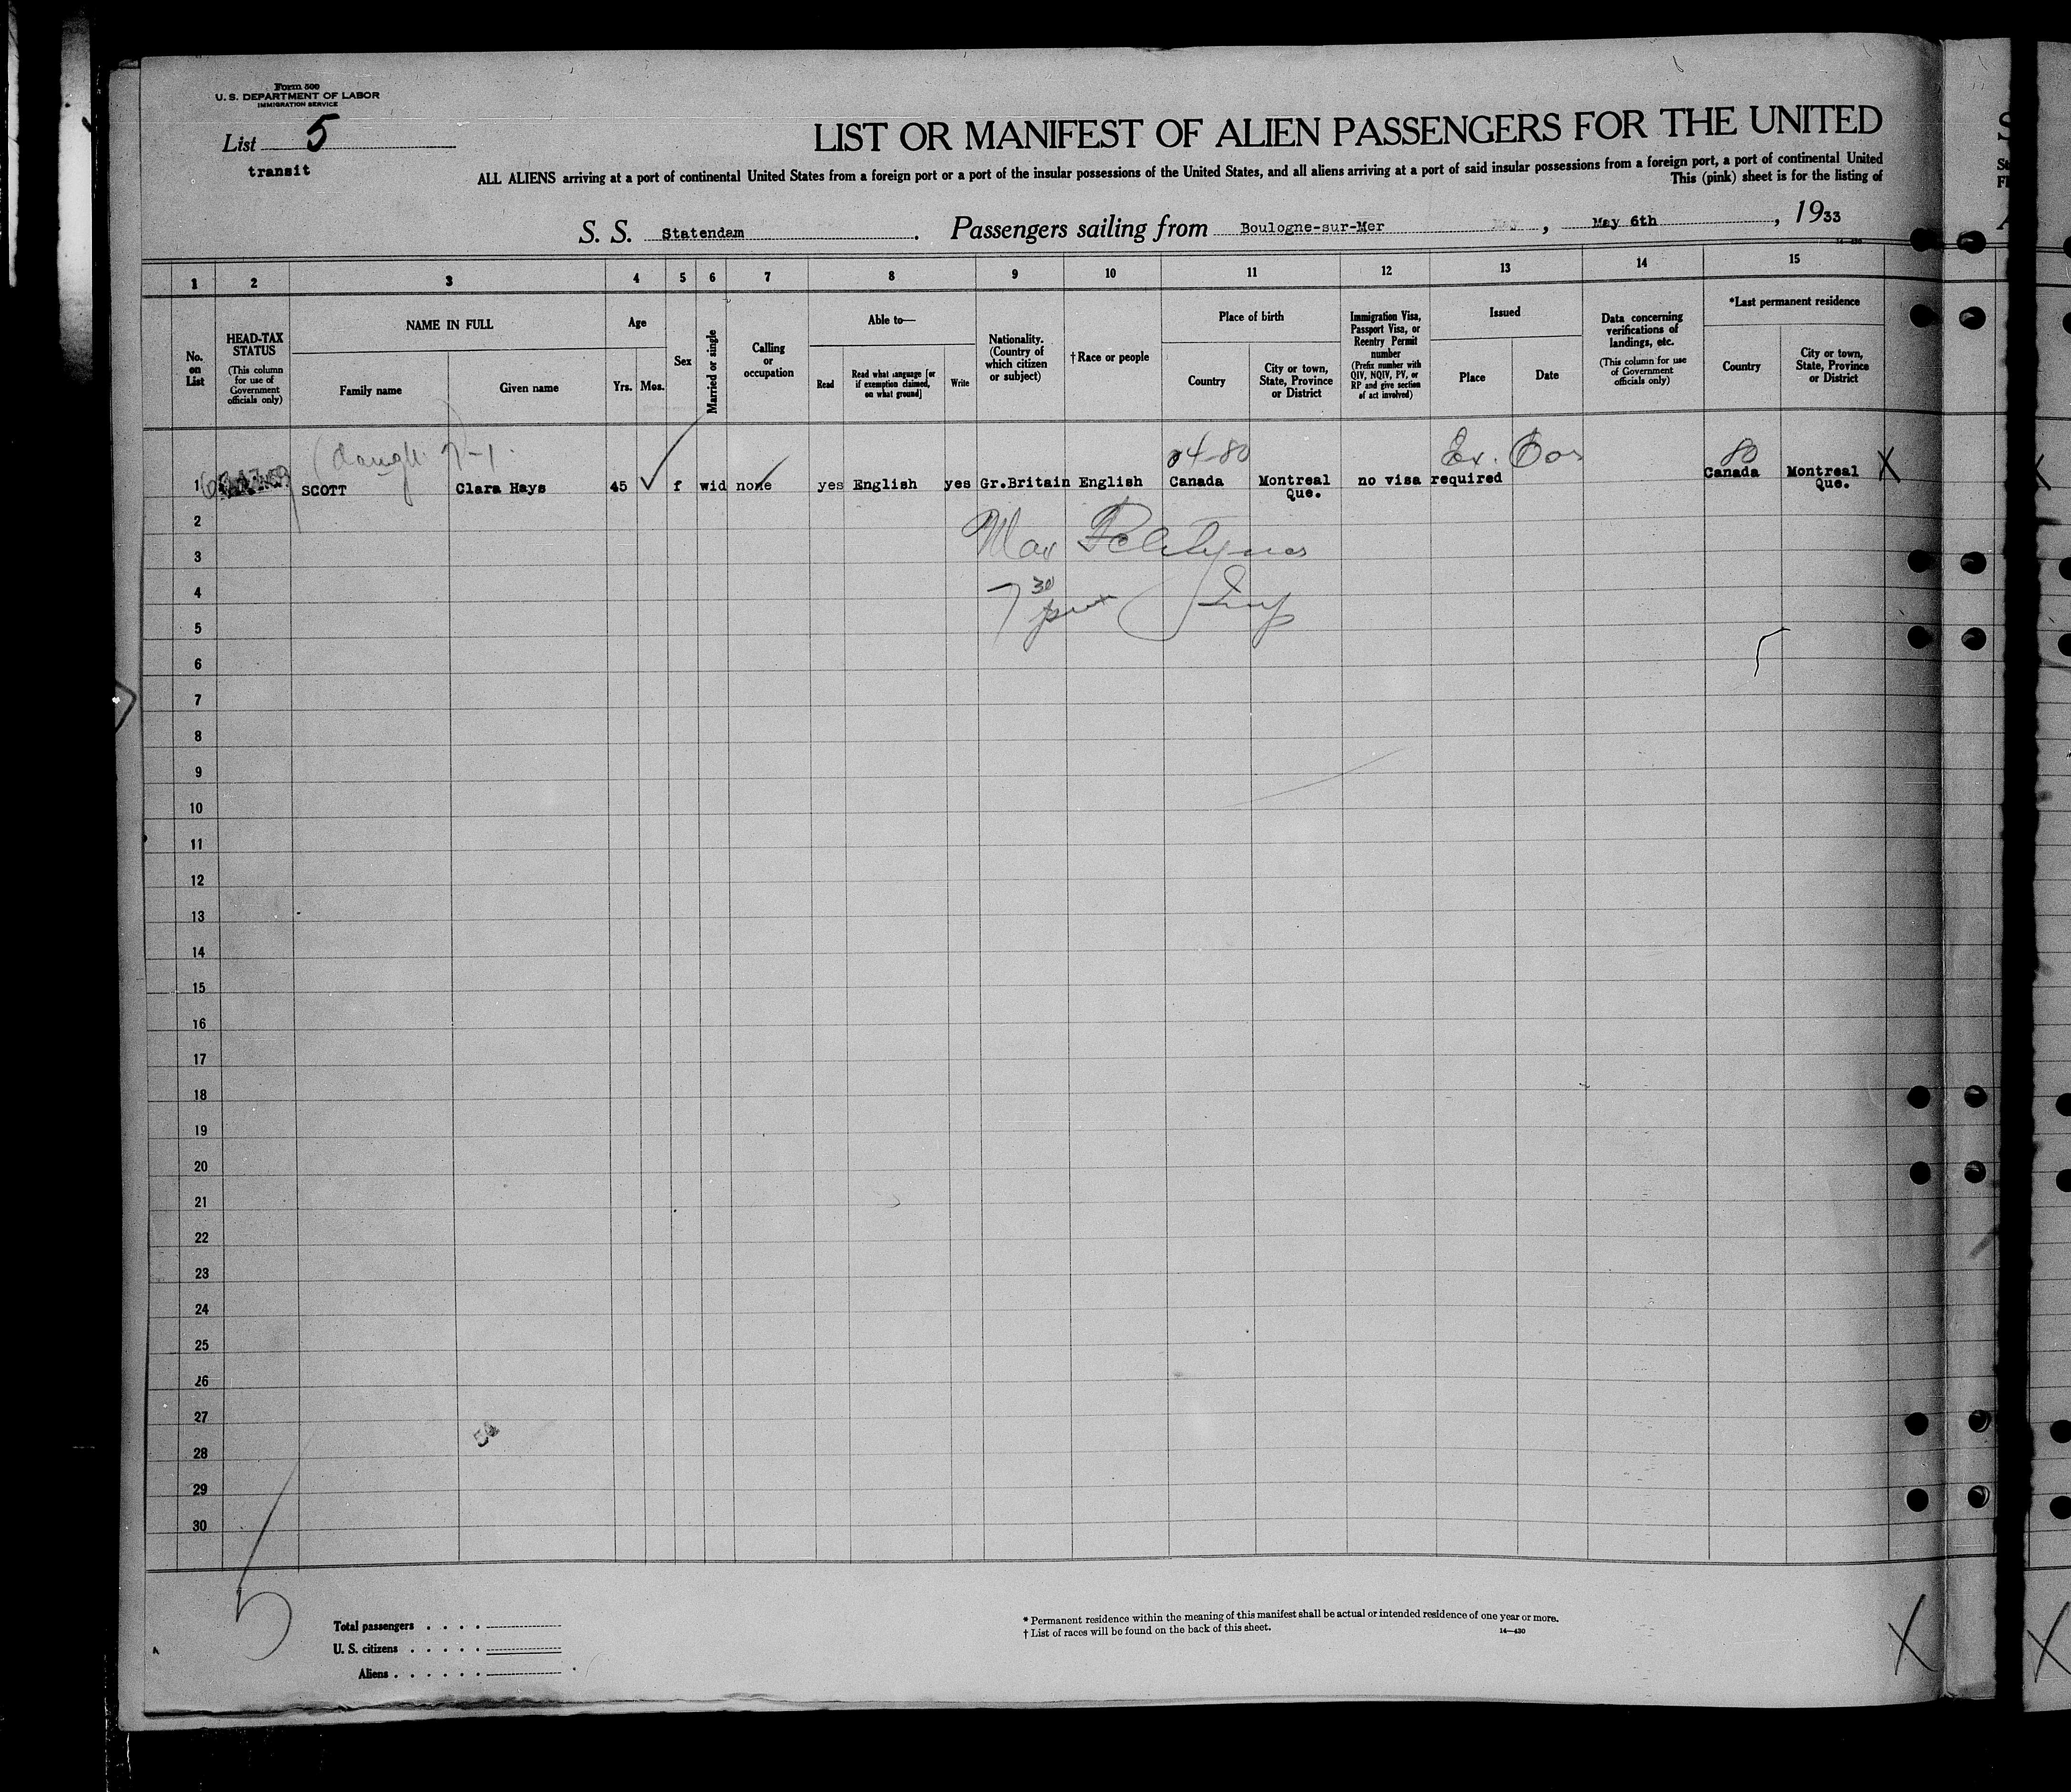 Form 500
U. S. DEPARTMENT OF LABOR
IMMIGRATION SERVICE
List 5
transit
LIST OR MANIFEST OF ALIEN PASSENGERS FOR THE UNITED
ALL ALIENS arriving at a port of continental United States from a foreign port or a port of the insular possessions of the United States, and all aliens arriving at a port of said insular possessions from a foreign port, a port of continental United
This (pink) sheet is for the listing of
S. S. Statendam. Passengers sailing from Boulogne-sur-Mer, May 6th, 1933
14—430
1 2 3 4 5 6 7 8 9 10 11 12 13 14 15
No. on List
HEAD-TAX STATUS
(This column for use of Government officials only)
NAME IN FULL
Family name
Given name
Age
Yrs. Mos.
Sex
Married or single
Calling or occupation
Able to—
Read
Read what language [or if exemption claimed, on what ground]
Write
Nationality. (Country of which citizen or subject)
†Race or people
Place of birth
Country
City or town, State, Province or District
Immigration Visa, Passport Visa, or Reentry Permit number
(Prefix number with QIV, NQIV, PV, or RP and give section of act involved)
Issued
Place
Date
Data concerning verifications of landings, etc.
(This column for use of Government officials only)
*Last permanent residence
Country
City or town, State, Province or District
04-80 80
1 SCOTT Clara Hays 45 f wid none yes English yes Gr.Britain English Canada Montreal Que. no visa required Canada Montreal Que. X
2
3
4
7 30 pm
5
6
7
8
9
10
11
12
13
14
15
16
17
18
19
20
21
22
23
24
25
26
27
28
29
30
5
Total passengers
U. S. citizens
Aliens
* Permanent residence within the meaning of this manifest shall be actual or intended residence of one year or more.
† List of races will be found on the back of this sheet.
14—430
X